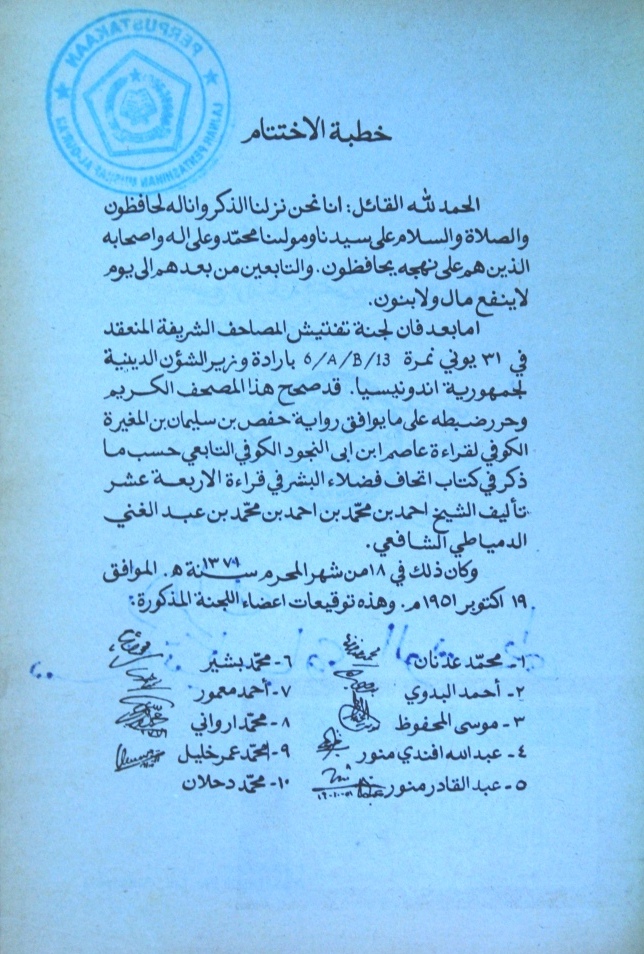 PERPUSTAKAAN
LAJNAH PENTASHIHAN MUSHAF AL-QUR'AN
خطبة الاختتام
الحمد لله القائل: انا نحن نزلنا الذكر وانا له لحافظون
والصلاة والسلام على سيدنا ومولىنا محمّد وعلى اله واصحابه
الذين هم على نهجه يحافظون. والتابعين من بعدهم الى يوم
لاينفع مال ولابنون.
امابعد فان لجنة تفتيش المصاحف الشريفة المنعقد
في ٣١ يوني نمرة 6/A/B/13 بارادة وزير الشؤن الدينية
لجمهورية اندونيسيا. قد صحح هذا المصحف الكريم
وحرر ضبطه على مايوافق رواية حفص بن سليمان بن المغيرة
الكوفي لقراءة عاصم ابن ابى النجود الكوفي التابعي حسب ما
ذكر في كتاب اتحاف فضلاء البشر في قراءة الاربعة عشر
تأليف الشيخ احمد بن محمّد بن احمد بن محمّد بن عبد الغني
الدمياطي الشافعي.
وكان ذلك في ١٨ من شهر المحرم سنة ١٣٧١ ھ. الموافق
١٩ اكتوبر ١٩٥١ م. وهذه توقيعات اعضاء اللجنة المذكورة:
١- محمّد عدنان
٢- أحمد البدوي
٣- موسى المحفوظ
٤- عبد الله افندي منور
٥- عبد القادر منور
٦- محمّد بشير
٧- أحمد معمور
٨- محمّد ارواني
٩- محمّد عمر خليل
١٠- محمّد دحلان